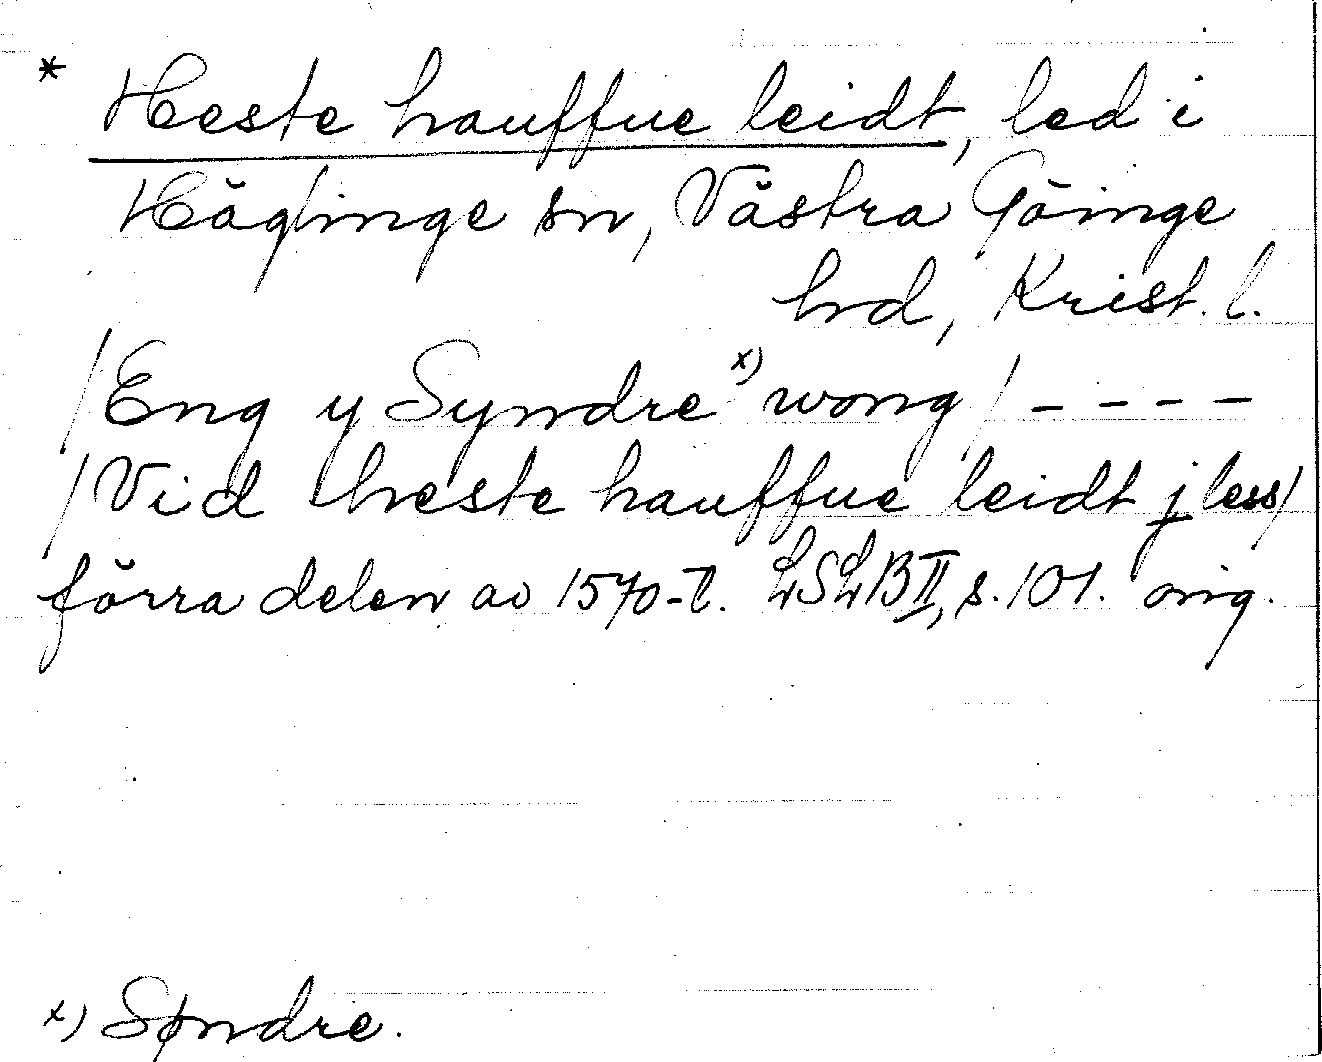 * Heste hauffue leidt, led i
Häglinge sn, Västra Göinge
hrd, Krist. l.
/Eng y Syndre x) wong/ - - - -
/Vid heste hauffue leidt j less/
förra delen av 1570-t. LSLB II, s. 101. orig.
x) Søndre.